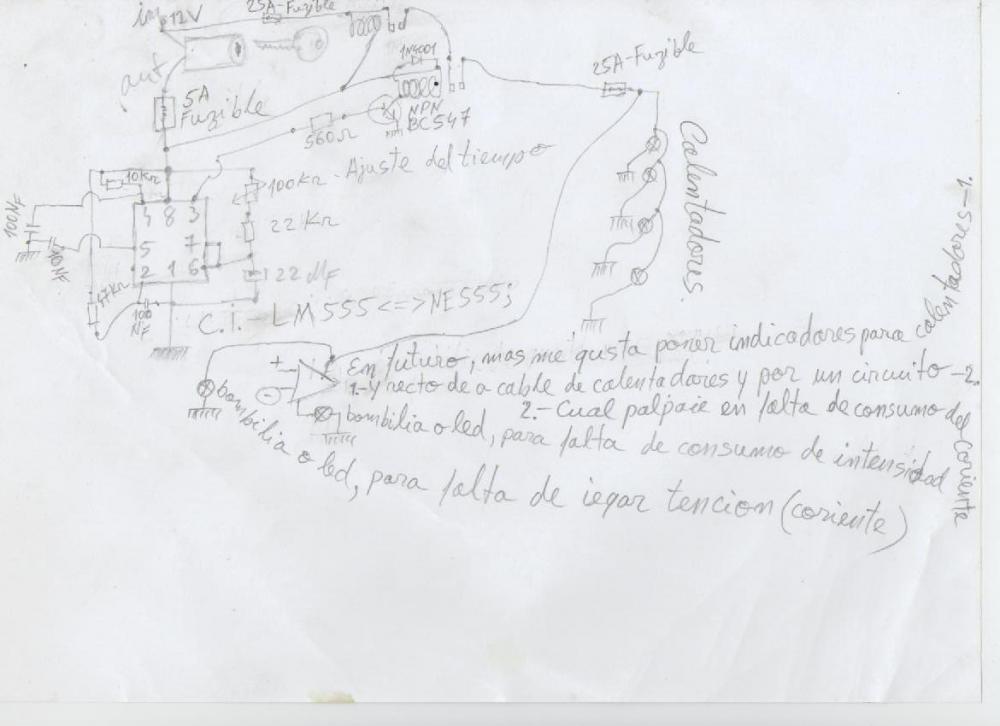 in 12V
25A-Fuzible
aut
5A
Fuzible
1N4001
NPN
BC547
560Ω
25A-Fuzible
Calentadores.
Ajuste del tiempo
100KΩ
22 KΩ
22 MF
10KΩ
100NF
10NF
47KΩ
100
NF
4 8 3
5 7
2 1 6
C.I.-LM555<=>NE555;
+
-
En futuro, mas me gusta poner indicadores para calentadores-1.
1.-y recto de a cable de calentadores y por un circuito-2.
2.-Cual palpaie en falta de consumo del coriente
bombilia o led, para falta de consumo de intensidad
bombilia o led, para falta de iegar tencion (coriente)